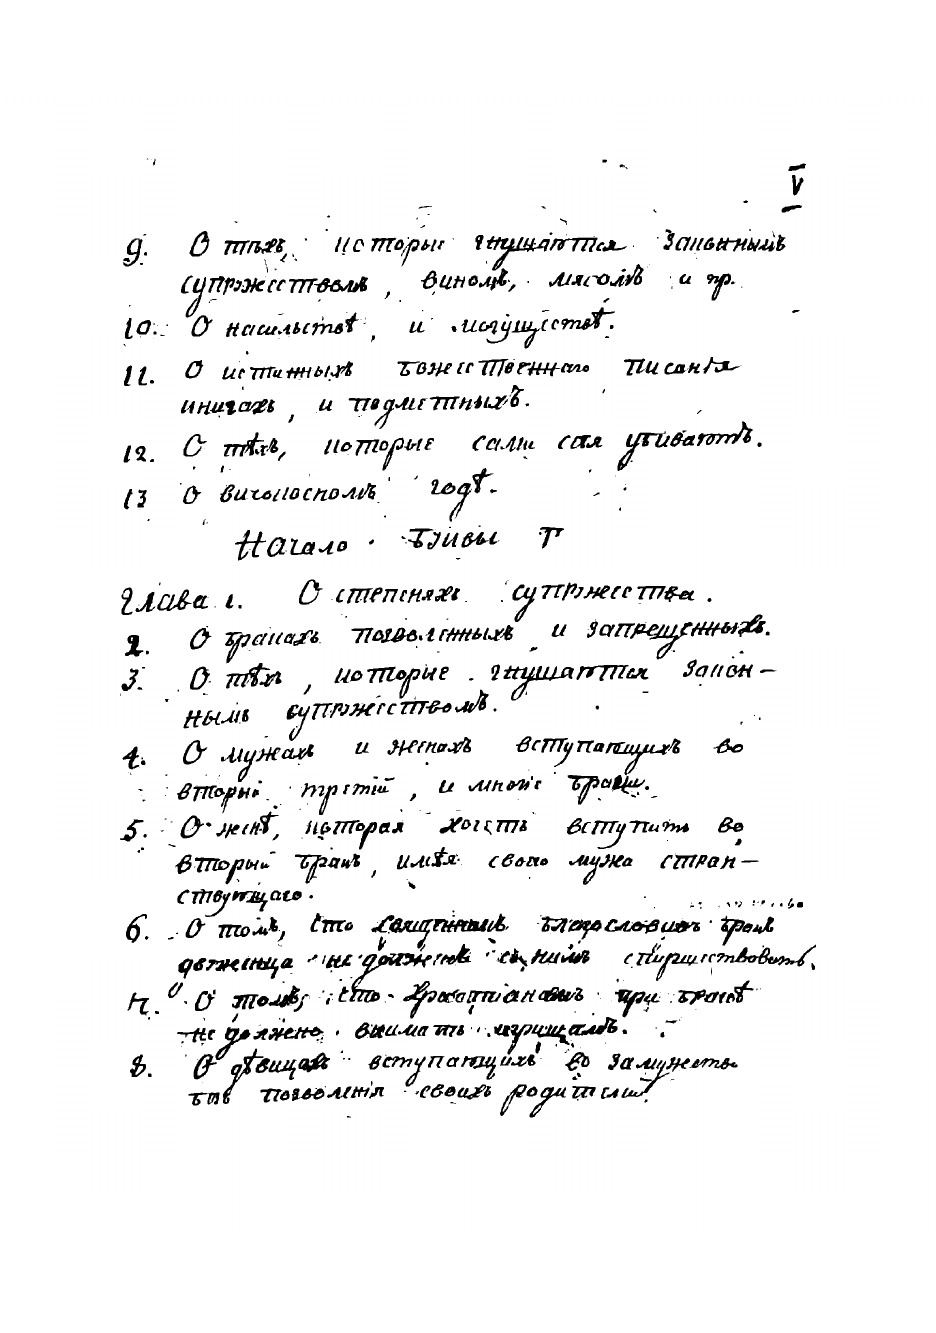 V
9. О тѣхъ, которые гнушаются законнымъ
супружествомъ, виномъ, мясомъ и пр.
10. О насильствѣ, и могуществѣ.
11. О истинныхъ божественнаго писанія
книгахъ, и подметныхъ.
12. О тѣхъ, которые сами себя убиваютъ.
13 О високосномъ годѣ.
Начало Буквы Г
Глава 1. О степеняхъ супружества.
2. О бракахъ позволенныхъ и запрещенныхъ.
3. О тѣхъ, которые гнушаются закон-
нымъ супружествомъ.
4. О мужахъ и женахъ вступающихъ во
вторый третій, и многіе браки.
5. О женѣ, которая хочетъ вступить во
вторый бракъ, имѣя своего мужа стран-
ствующаго.
6. О томъ, что священникъ благословивъ бракъ
двоженца не долженъ съ нимъ спиршествовать.
7. О томъ, что христіанамъ при бракѣ
не должно внимать игрищамъ.
8. О дѣвицахъ вступающихъ во замужство
безъ позволенія своихъ родителей.